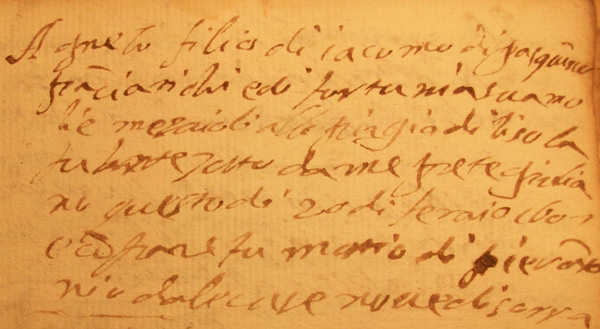 Agnelo filio di iacomo di pasquino
franciarichi e di fortunia sua mo
lie mezaioli alla piagia di biso la
fu batezato da me prete Giulia
no questo di 20 di feraio 1601
e conpare fu mario di pierant
nio dale case nove di sopra